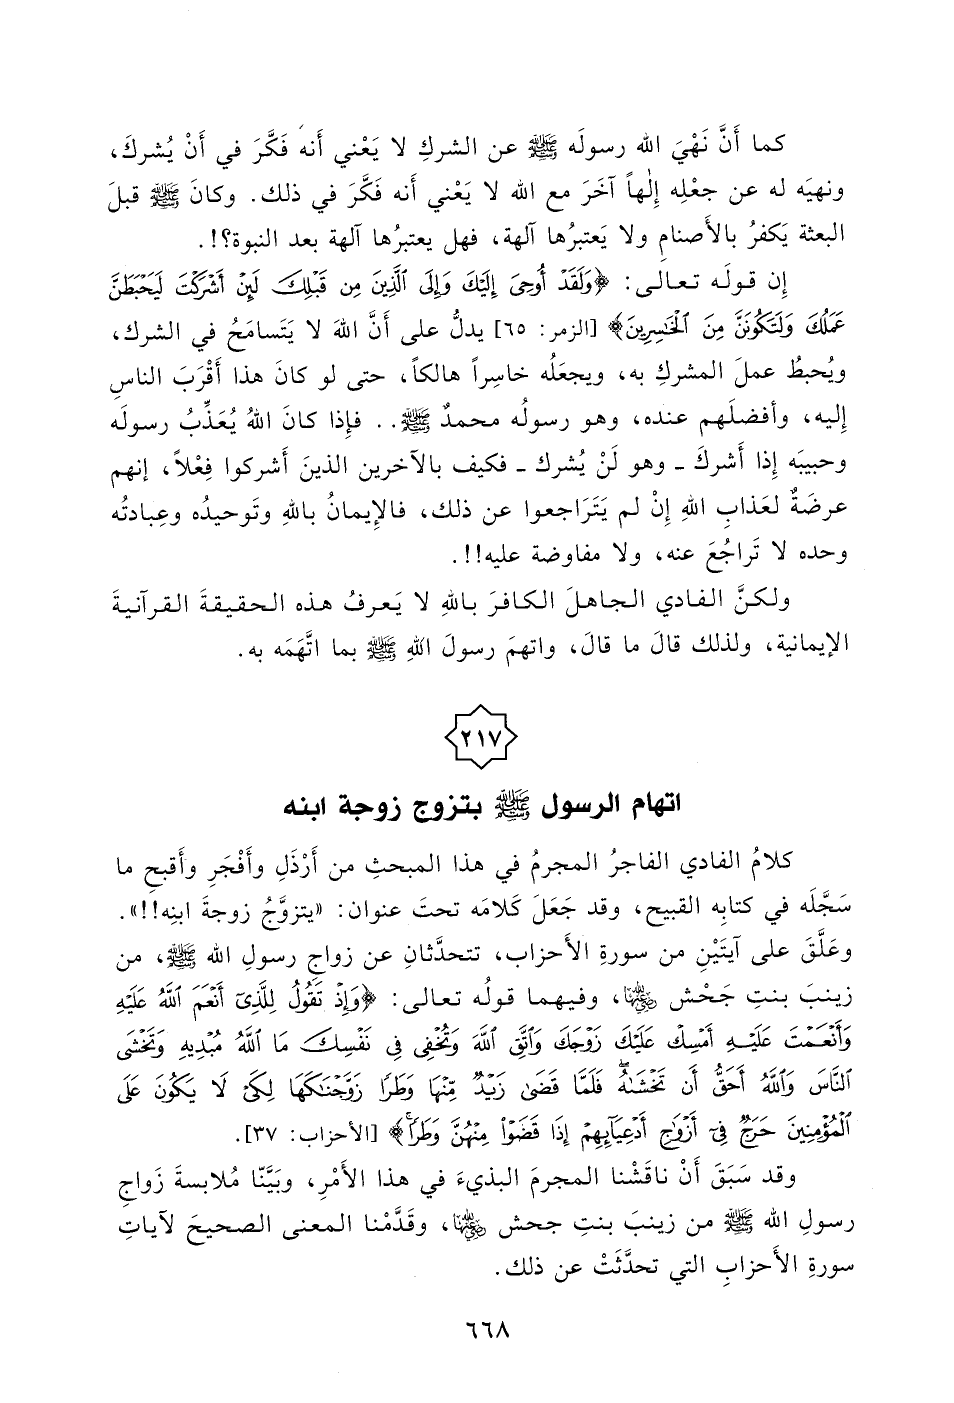 كما أَنَّ نَهْيَ الله رسولَه ﷺ عن الشركِ لا يَعْني أَنه فَكَّرَ في أَنْ يُشركَ،
ونهيَه له عن جعْلِه إِلٰهاً آخَرَ مع الله لا يَعْني أَنه فَكَّرَ في ذلك. وكانَ ﷺ قبلَ
البعثة يَكفرُ بالأَصنامِ ولا يَعتبرُها آلهة، فهل يعتبرُها آلهة بعد النبوة؟!.
إِن قولَه تعالى: ﴿وَلَقَدْ أُوحِىَ إِلَيْكَ وَإِلَى ٱلَّذِينَ مِن قَبْلِكَ لَئِنْ أَشْرَكْتَ لَيَحْبَطَنَّ
عَمَلُكَ وَلَتَكُونَنَّ مِنَ ٱلْخَٰسِرِينَ﴾ [الزمر: ٦٥] يدلُّ على أَنَّ اللهَ لا يَتَسامَحُ في الشرك،
ويُحبطُ عملَ المشركِ به، ويجعَلُه خاسِراً هالكاً، حتى لو كانَ هذا أَقْرَبَ الناسِ
إِليه، وأَفضلَهم عنده، وهو رسولُه محمدٌ ﷺ.. فإِذا كانَ اللهُ يُعَذِّبُ رسولَه
وحبيبَه إِذا أَشركَ ـ وهو لَنْ يُشرك ـ فكيف بالآخرين الذينَ أَشركوا فِعْلاً، إنهم
عرضَةٌ لعَذابِ اللهِ إِنْ لم يَتَراجعوا عن ذلك، فالإِيمانُ باللهِ وتَوحيدُه وعِبادتُه
وحده لا تَراجُعَ عنه، ولا مفاوضة عليه!!.
ولكنَّ الفادي الجاهلَ الكافرَ باللهِ لا يَعرفُ هذه الحقيقةَ القرآنيةَ
الإيمانية، ولذلك قالَ ما قالَ، واتهمَ رسولَ اللهِ ﷺ بما اتَّهَمَه به.
٢١٧
اتهام الرسول ﷺ بتزوج زوجة ابنه
كلامُ الفادي الفاجرُ المجرمُ في هذا المبحثِ من أَرْذَلِ وأَفْجَرِ وأَقبحِ ما
سَجَّلَه في كتابِه القبيح، وقد جَعَلَ كَلامَه تحتَ عنوان: «يتزوَّجُ زوجةَ ابنِه!!».
وعَلَّقَ على آيتَيْنِ من سورةِ الأَحزاب، تتحدَّثانِ عن زواجِ رسولِ الله ﷺ، من
زينبَ بنتِ جَحْش رضي الله عنها، وفيهما قولُه تعالى: ﴿وَإِذْ تَقُولُ لِلَّذِىٓ أَنْعَمَ ٱللَّهُ عَلَيْهِ
وَأَنْعَمْتَ عَلَيْهِ أَمْسِكْ عَلَيْكَ زَوْجَكَ وَٱتَّقِ ٱللَّهَ وَتُخْفِى فِى نَفْسِكَ مَا ٱللَّهُ مُبْدِيهِ وَتَخْشَى
ٱلنَّاسَ وَٱللَّهُ أَحَقُّ أَن تَخْشَىٰهُ ۖ فَلَمَّا قَضَىٰ زَيْدٌ مِّنْهَا وَطَرًا زَوَّجْنَٰكَهَا لِكَىْ لَا يَكُونَ عَلَى
ٱلْمُؤْمِنِينَ حَرَجٌ فِىٓ أَزْوَٰجِ أَدْعِيَآئِهِمْ إِذَا قَضَوْا۟ مِنْهُنَّ وَطَرًا ۚ﴾ [الأحزاب: ٣٧].
وقد سَبَقَ أَنْ ناقَشْنا المجرمَ البذيءَ في هذا الأَمْرِ، وبَيَّنّا مُلابسةَ زَواجِ
رسولِ الله ﷺ من زينبَ بنتِ جحش رضي الله عنها، وقَدَّمْنا المعنى الصحيحَ لآياتِ
سورةِ الأَحزابِ التي تحدَّثَتْ عن ذلك.
٦٦٨